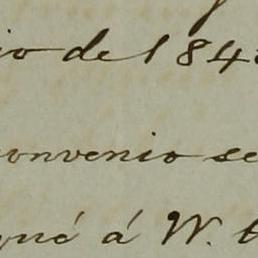 io de 184
convenio se
qué á W.